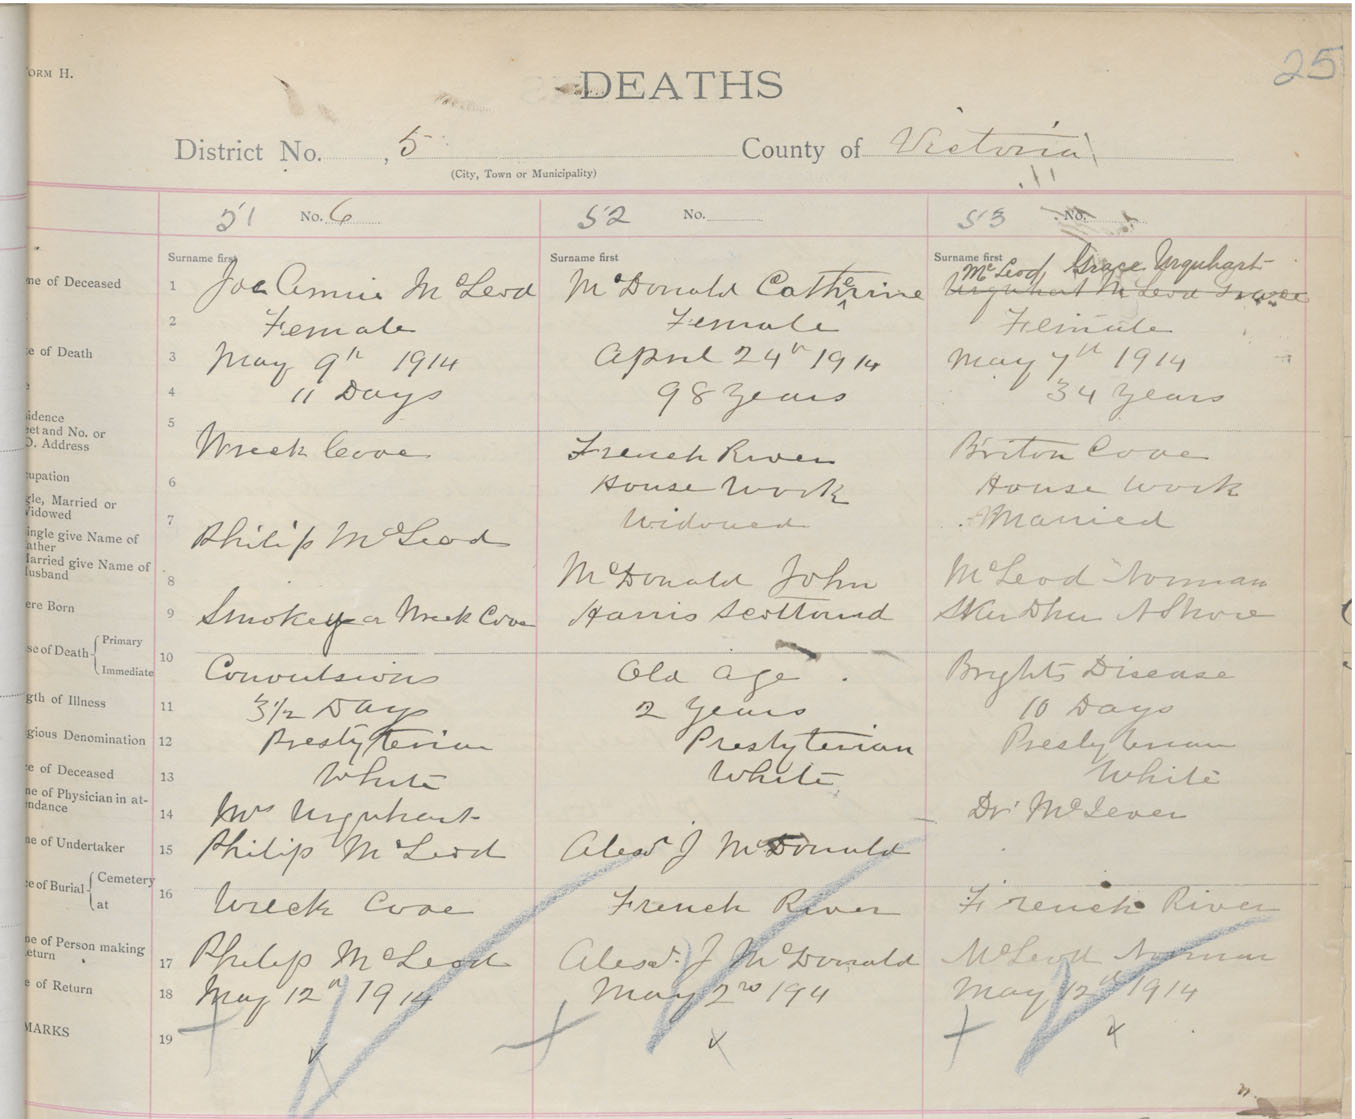 ORM H.
25
DEATHS
District No. 5 County of Victoria
(City, Town or Municipality)
51 No. 6 52 No. 53 No.
Surname first Surname first Surname first
McLeod, Grace Urquhart
me of Deceased 1 Annie McLeod McDonald Catherine Urquhart McLeod Grace
2 Female Female Female
e of Death 3 May 9th 1914 April 24th 1914 May 7th 1914
e 4 11 Days 98 Years 34 Years
idence
eet and No. or
O. Address 5 Wreck Cove French River Briton Cove
cupation 6 House Work House Work
gle, Married or
Widowed 7 Widowed Married
ingle give Name of
ather Philip McLeod
Married give Name of
usband 8 McDonald John McLeod Norman
ere Born 9 Smokey or Wreck Cove Harris Scottound N Shore
se of Death Primary
Immediate 10 Convulsions Old age Brights Disease
gth of Illness 11 3 1/2 Days 2 Years 10 Days
gious Denomination 12 Presbyterian Presbyterian Presbyterian
e of Deceased 13 White White White
ne of Physician in at-
ndance 14 Mrs Urquhart Dr McLever
ne of Undertaker 15 Philip McLeod Alexd J McDonald
e of Burial Cemetery
at 16 Wreck Cove French River French River
ne of Person making
eturn 17 Philip McLeod Alexd. J McDonald McLeod Norman
e of Return 18 May 12th 1914 May 2nd 194 May 12th 1914
MARKS 19